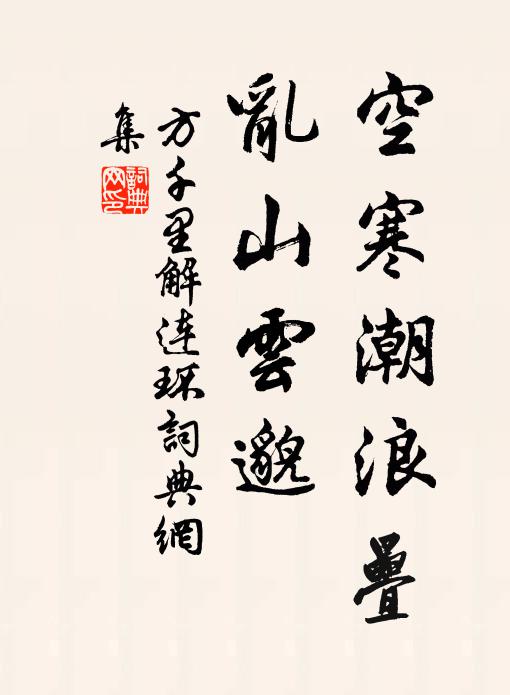 空寒潮浪疊
亂山雲邈
方千里解連环詞典網
集
詞典
网印